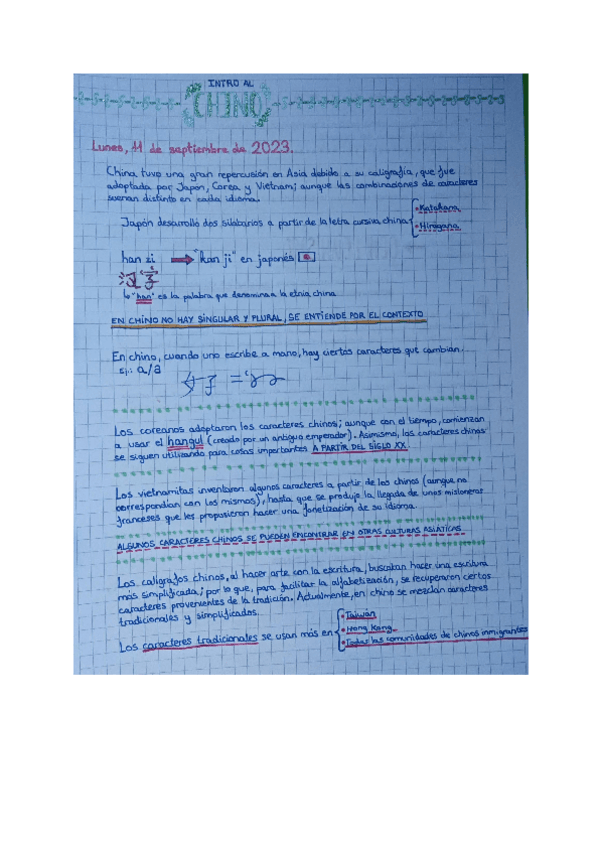 INTRO AL
CHINO
Lunes, 11 de septiembre de 2023.
China tuvo una gran repercusión en Asia debido a su caligrafía, que fue
adoptada por Japón, Corea y Vietnam; aunque las combinaciones de caracteres
suenan distinto en cada idioma.
Japón desarrolló dos silabarios a partir de la letra cursiva china
• Katakana
• Hiragana
han zi → "kan ji" en japonés
汉字
↳ "han" es la palabra que denomina a la etnia china
EN CHINO NO HAY SINGULAR Y PLURAL, SE ENTIENDE POR EL CONTEXTO
En chino, cuando uno escribe a mano, hay ciertos caracteres que cambian.
Ej.: a/a
Los coreanos adoptaron los caracteres chinos; aunque con el tiempo, comienzan
a usar el hangul (creado por un antiguo emperador). Asimismo, los caracteres chinos
se siguen utilizando para cosas importantes A PARTIR DEL SIGLO XX.
Los vietnamitas inventaron algunos caracteres a partir de los chinos (aunque no
correspondían con los mismos), hasta que se produjo la llegada de unos misioneros
franceses que les propusieron hacer una fonetización de su idioma.
ALGUNOS CARACTERES CHINOS SE PUEDEN ENCONTRAR EN OTRAS CULTURAS ASIÁTICAS
Los calígrafos chinos, al hacer arte con la escritura, buscaban hacer una escritura
más simplificada; por lo que, para facilitar la alfabetización, se recuperaron ciertos
caracteres provenientes de la tradición. Actualmente, en chino se mezclan caracteres
tradicionales y simplificados.
Los caracteres tradicionales se usan más en
• Taiwán
• Hong Kong
• Todas las comunidades de chinos inmigrantes